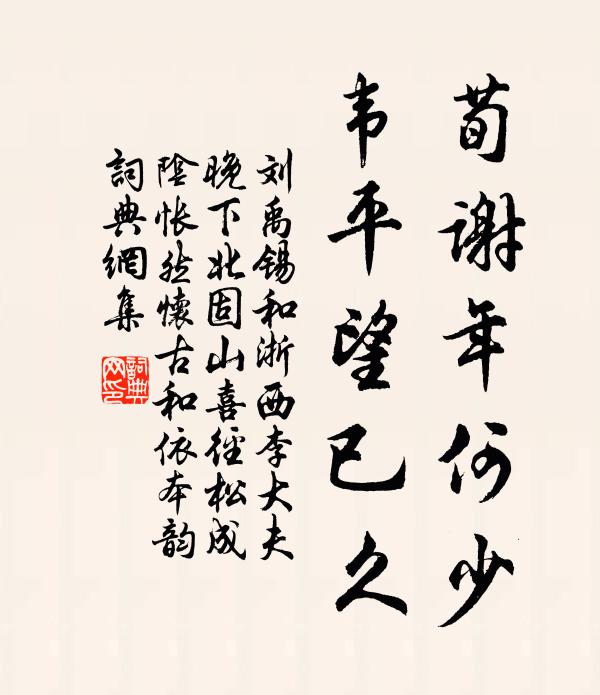 荀谢年何少
韦平望已久
刘禹锡和浙西李大夫
晚下北固山喜径松成
阴怅然怀古和依本韵
词典网集
詞典
网印